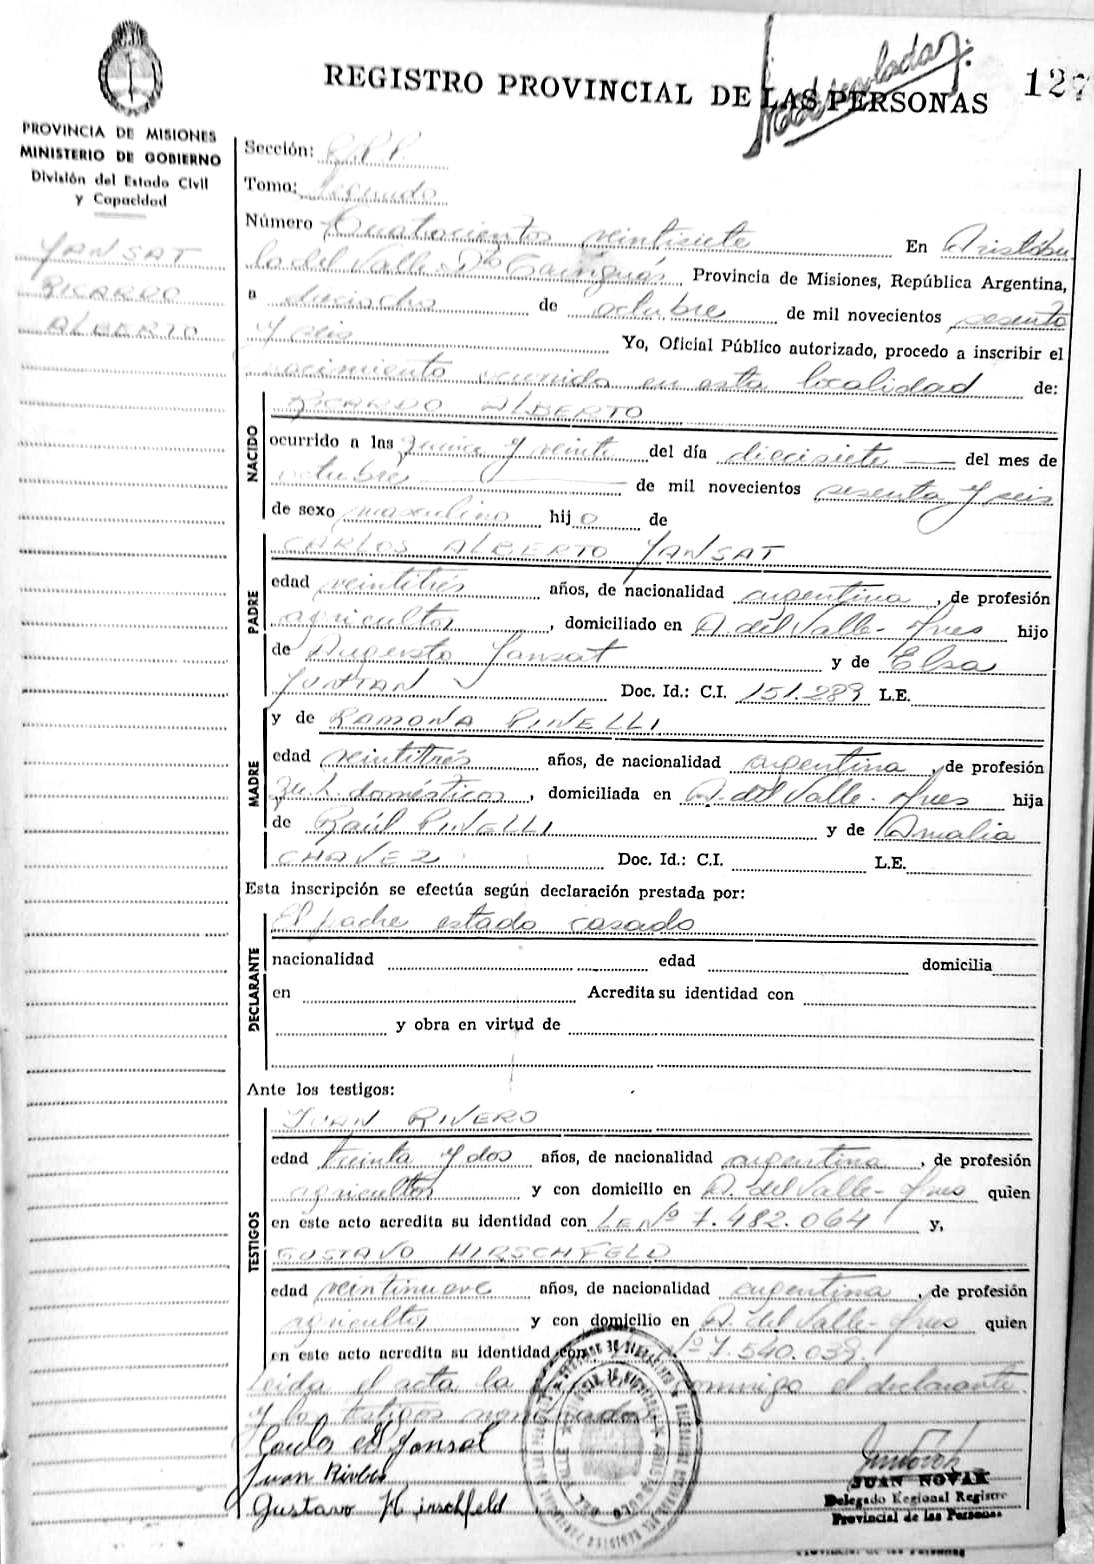 REGISTRO PROVINCIAL DE LAS PERSONAS
127
PROVINCIA DE MISIONES
MINISTERIO DE GOBIERNO
División del Estado Civil
y Capacidad
YANSAT
RICARDO
ALBERTO
Sección:
Tomo: Segundo
Número Cuatrocientos veintisiete En Aristóbu
lo del Valle Dto Cainguás Provincia de Misiones, República Argentina,
a dieciocho de octubre de mil novecientos sesenta
y seis Yo, Oficial Público autorizado, procedo a inscribir el
nacimiento ocurrido en esta localidad de:
NACIDO
RICARDO ALBERTO
ocurrido a las quince y veinte del día diecisiete del mes de
octubre de mil novecientos sesenta y seis
de sexo masculino hijo de
PADRE
CARLOS ALBERTO YANSAT
edad veintitrés años, de nacionalidad argentina, de profesión
agricultor, domiciliado en A. del Valle- Mnes hijo
de Augusto Yansat y de Elsa
Doc. Id.: C.I. 151.289 L.E.
MADRE
y de RAMONA PINELLI
edad veintitrés años, de nacionalidad argentina, de profesión
domésticos, domiciliada en A. del Valle- Mnes hija
de Raúl PINELLI y de Amalia
CHAVEZ Doc. Id.: C.I. L.E.
Esta inscripción se efectúa según declaración prestada por:
DECLARANTE
El padre estado casado
nacionalidad edad domicilia
en Acredita su identidad con
y obra en virtud de
Ante los testigos:
TESTIGOS
JUAN RIVERO
edad treinta y dos años, de nacionalidad argentina, de profesión
agricultor y con domicilio en A. del Valle- Mnes quien
en este acto acredita su identidad con LE Nº 7.482.064 y,
GUSTAVO HIRSCHFELD
edad veintinueve años, de nacionalidad argentina, de profesión
agricultor y con domicilio en A. del Valle- Mnes quien
en este acto acredita su identidad con Nº 7.540.039.
Leida el acta la conmigo el declarante
y los testigos nombrados
Carlos A Yansat
Juan Rivero
Gustavo Hirschfeld
JUAN NOVAK
Delegado Regional Registro
Provincial de las Personas